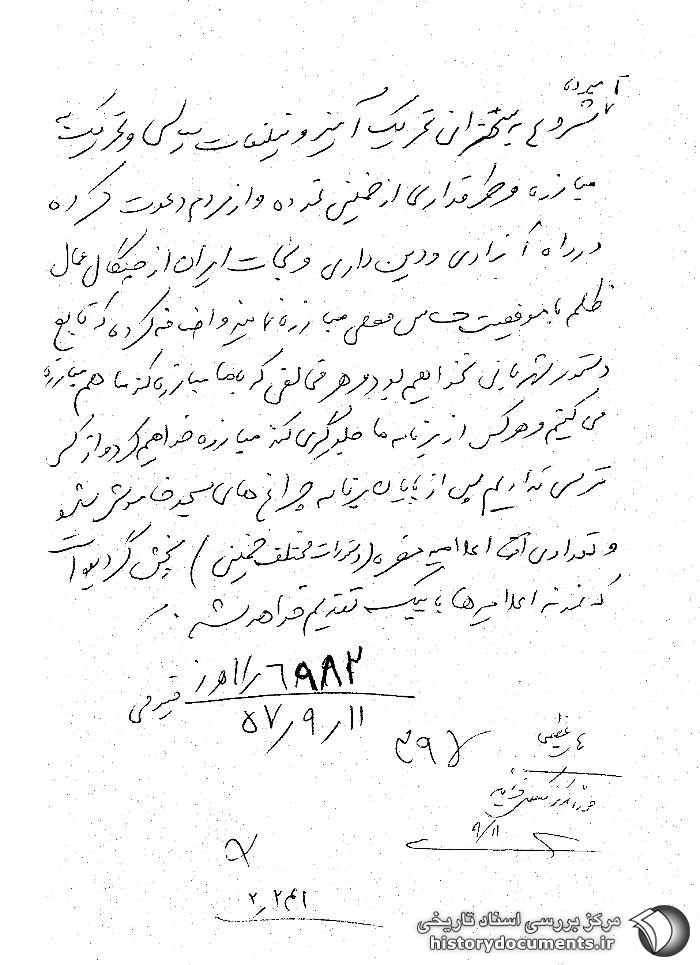 شروع به سخنرانی تحریک آمیز و تبلیغات سیاسی و تحریک به
مبارزه و طرفداری از خمینی نموده و از مردم دعوت کرده
در راه آزادی و دین داری و نجات ایران از چنگال عمال
ظلم با موفقیت مبارزه نمایند و اضافه کرده که تابع
دستور شهربانی نخواهیم بود و هر مخالفی که با ما مبارزه کند ما هم مبارزه
می کنیم و هرکس از برنامه ما جلوگیری کند مبارزه خواهیم کرد و از کسی
ترسی نداریم پس از پایان برنامه چراغ های مسجد خاموش
و تعدادی اعلامیه مضره (دستورات مختلف خمینی) پخش گردیده است
که نمونه اعلامیه ها با پیک تقدیم خواهد شد.
۶۹۸۲
۵۷/۹/۱۱
۹/۱۱
مرکز بررسی اسناد تاریخی
historydocuments.ir